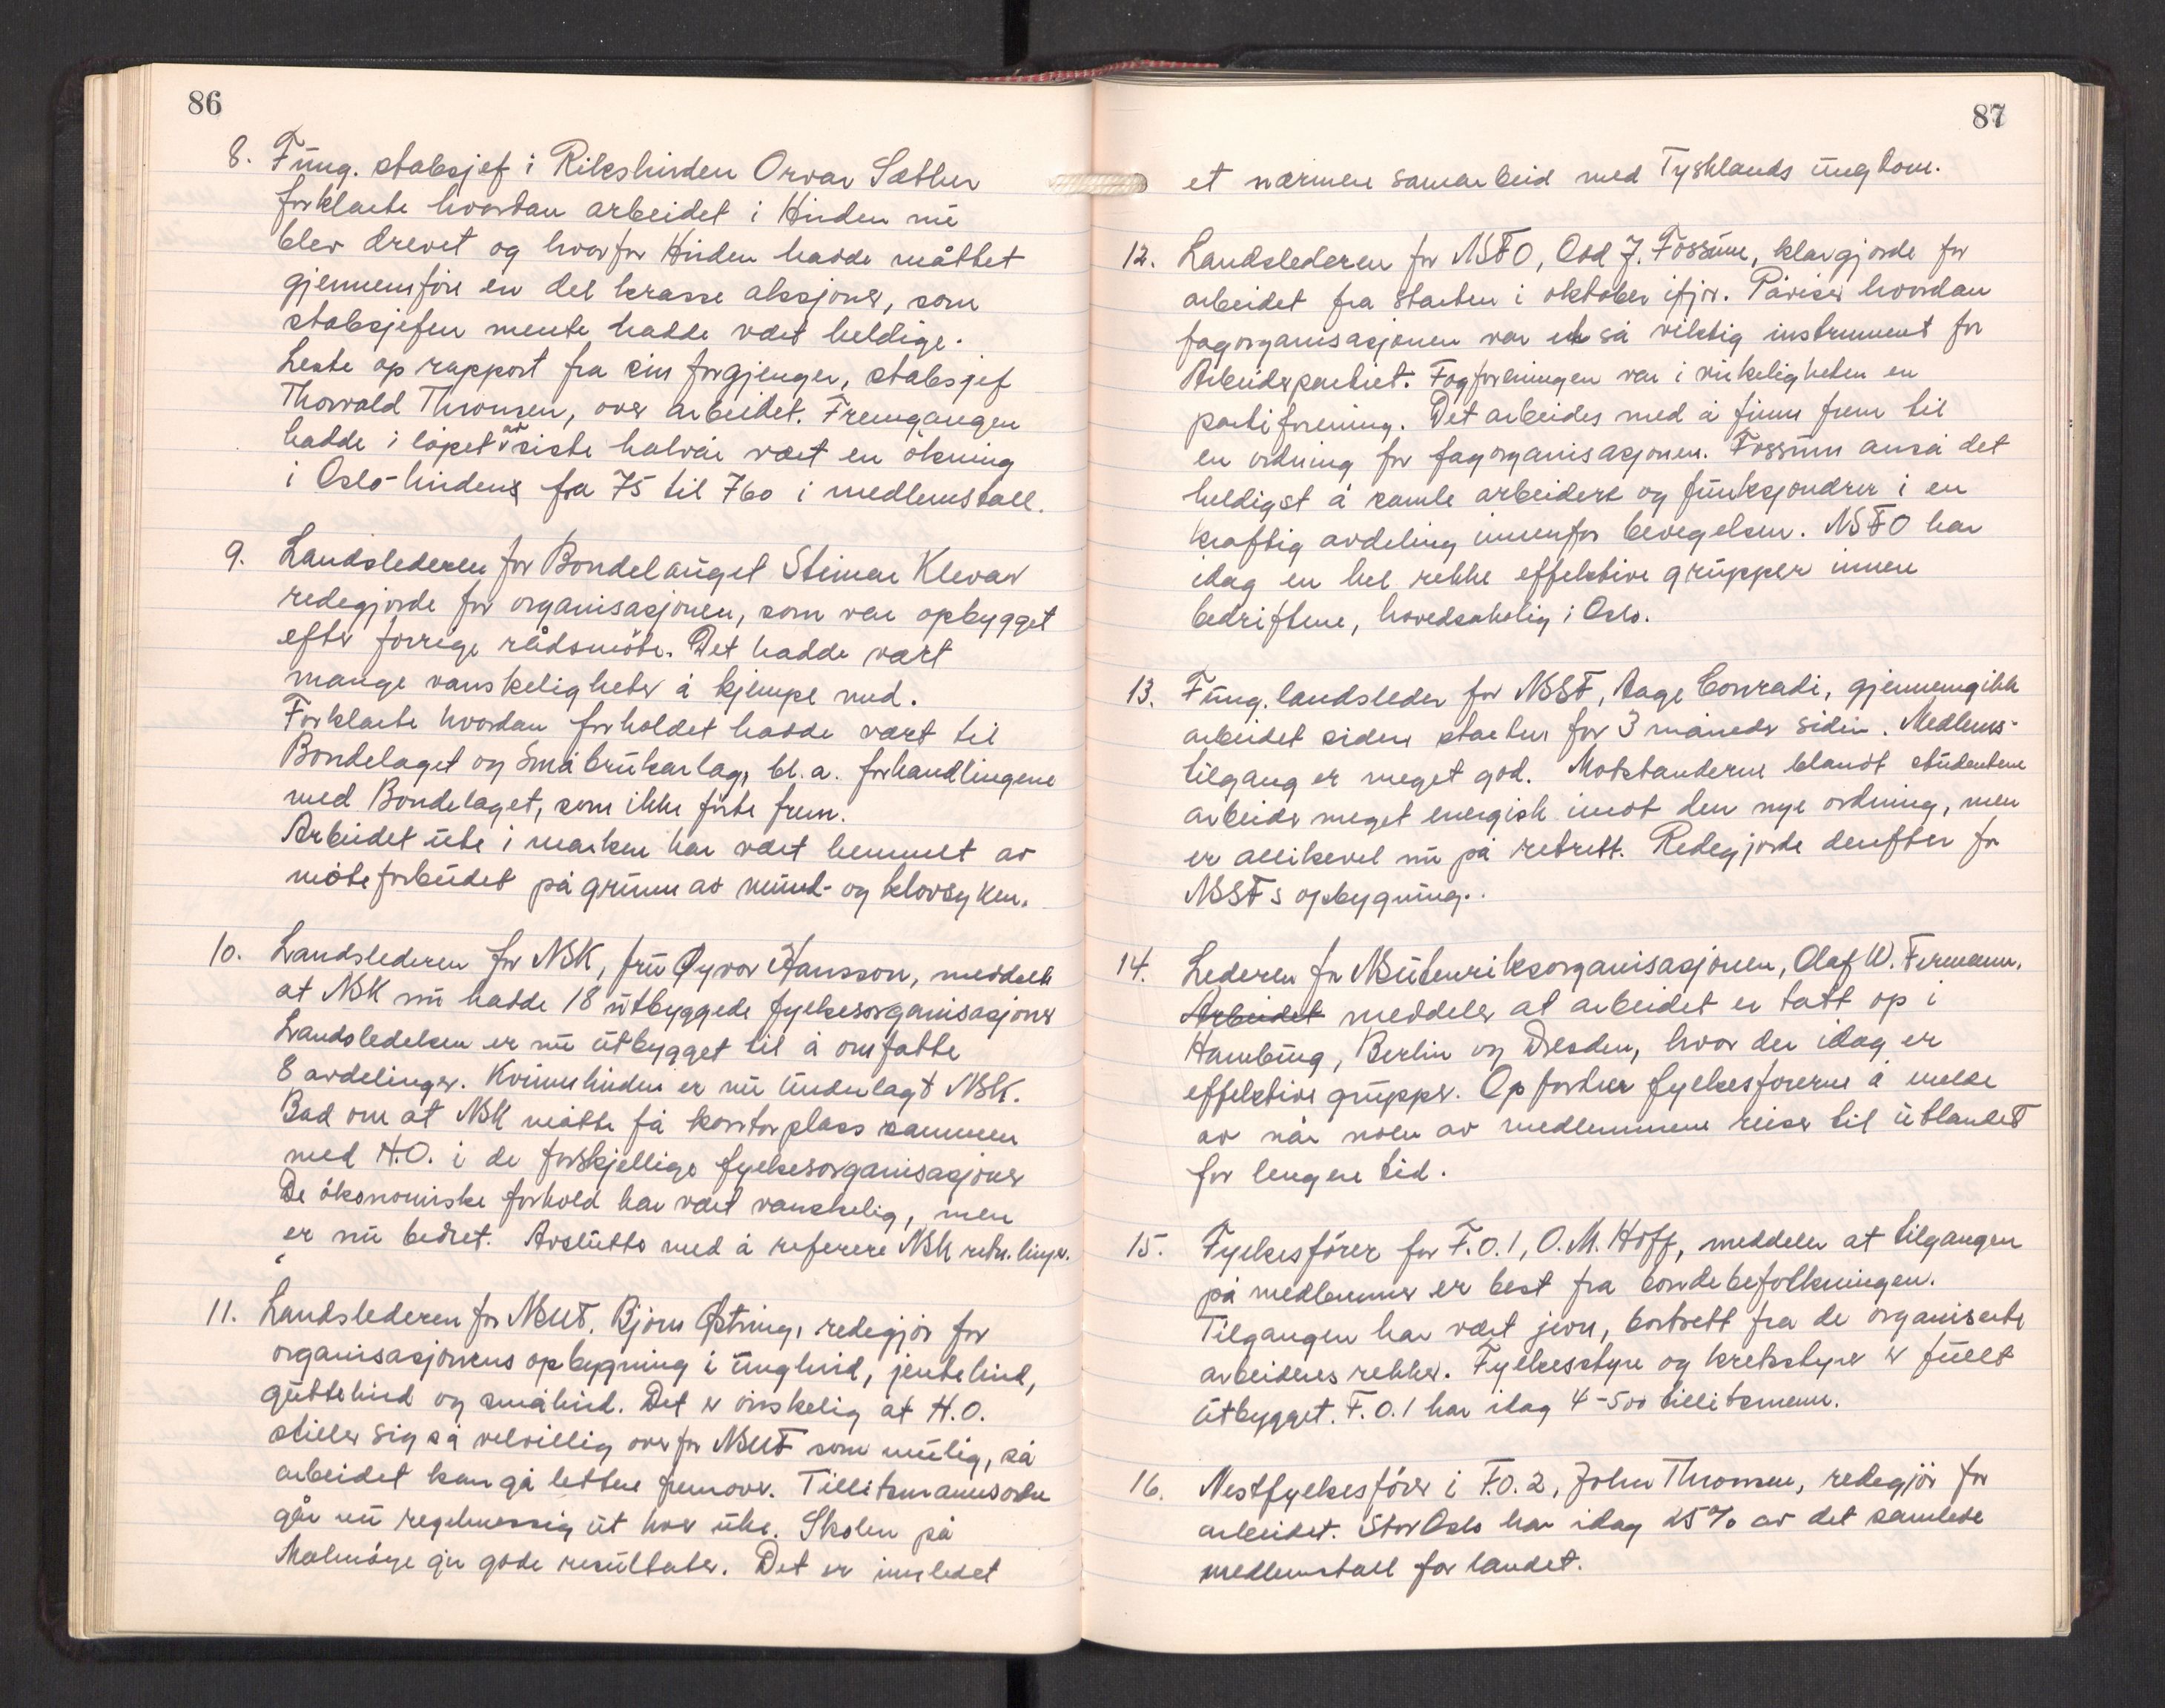 86
8. Fung. stabsjef i Rikshirden Orvar Sæther
forklarte hvordan arbeidet i Hirden nu
blev drevet og hvorfor Hirden hadde måttet
gjennemføre en del krasse aksjoner, som
stabsjefen mente hadde vært heldige.
Leste op rapport fra sin forgjenger, stabsjef
Thorvald Thronsen, over arbeidet. Fremgangen
hadde i løpet av siste halvår vært en økning
i Oslo-hirden fra 75 til 760 i medlemstall.
9. Landslederen for Bondelauget Steinar Klevar
redegjorde for organisasjonen, som var opbygget
efter forrige rådsmøte. Det hadde vært
mange vanskeligheter å kjempe med.
Forklarte hvordan forholdet hadde vært til
Bondelaget og Småbrukarlag, bl.a. forhandlingene
med Bondelaget, som ikke førte frem.
Arbeidet ute i marken har vært hemmet av
møteforbudet på grunn av munn- og klovsyken.
10. Landslederen for NSK, fru Øyvor Hansson, meddelte
at NSK nu hadde 18 utbyggede fylkesorganisasjoner
Landsledelsen er nu utbygget til å omfatte
8 avdelinger. Kvinnehirden er nu underlagt NSK.
Bad om at NSK måtte få kontorplass sammen
med H.O. i de forskjellige fylkesorganisasjoner
De økonomiske forhold har vært vanskelig, men
er nu bedret. Avsluttet med å referere NSK retn.linjer.
11. Landslederen for NSUF. Bjørn Østring, redegjør for
organisasjonens opbygning i unghird, jentehird,
guttehird og småhird. Det er ønskelig at H.O.
stiller sig så velvillig overfor NSUF som mulig, så
arbeidet kan gå lettere fremover. Tillitsmannsordre
går nu regelmessig ut hver uke. Skolen på
Malmøya gir gode resultater. Det er innledet
87
et nærmere samarbeid med Tysklands ungdom.
12. Landslederen for NSFO, Odd J. Fossum, klargjorde for
arbeidet fra starten i oktober ifjor. Påviser hvordan
fagorganisasjonen var et så viktig instrument for
Arbeiderpartiet. Fagforeningen var i virkeligheten en
partiforening. Det arbeides med å finne frem til
en ordning for fagorganisasjonen. Fossum anså det
heldigst å samle arbeidere og funksjonærer i en
kraftig avdeling innenfor bevegelsen. NSFO har
idag en hel rekke effektive grupper innen
bedriftene, hovedsakelig i Oslo.
13. Fung. landsleder for NSSF, Aage Conradi, gjennemgikk
arbeidet siden starten for 3 måneder siden. Medlems-
tilgang er meget god. Motstanderne blandt studentene
arbeider meget energisk imot den nye ordning, men
er allikevel nu på retrett. Redegjorde derefter for
NSSFs opbygning.
14. Lederen for NSutenriksorganisasjonen, Olaf W. Fermann.
Arbeidet meddeler at arbeidet er tatt op i
Hamburg, Berlin og Dresden, hvor der idag er
effektive grupper. Opfordrer fylkesførerne å melde
av når noen av medlemmene reiser til utlandet
for lengere tid.
15. Fylkesfører for F.O.1, O.M. Hoff, meddeler at tilgangen
på medlemmer er best fra bondebefolkningen.
Tilgangen har vært jevn, bortsett fra de organiserte
arbeideres rekker. Fylkesstyre og kretsstyrer er fullt
utbygget. F.O.1 har idag 4-500 tillitsmenn.
16. Nestfylkesfører i F.O.2, John Thronsen, redegjør for
arbeidet. Stor Oslo har idag 25% av det samlede
medlemstall for landet.